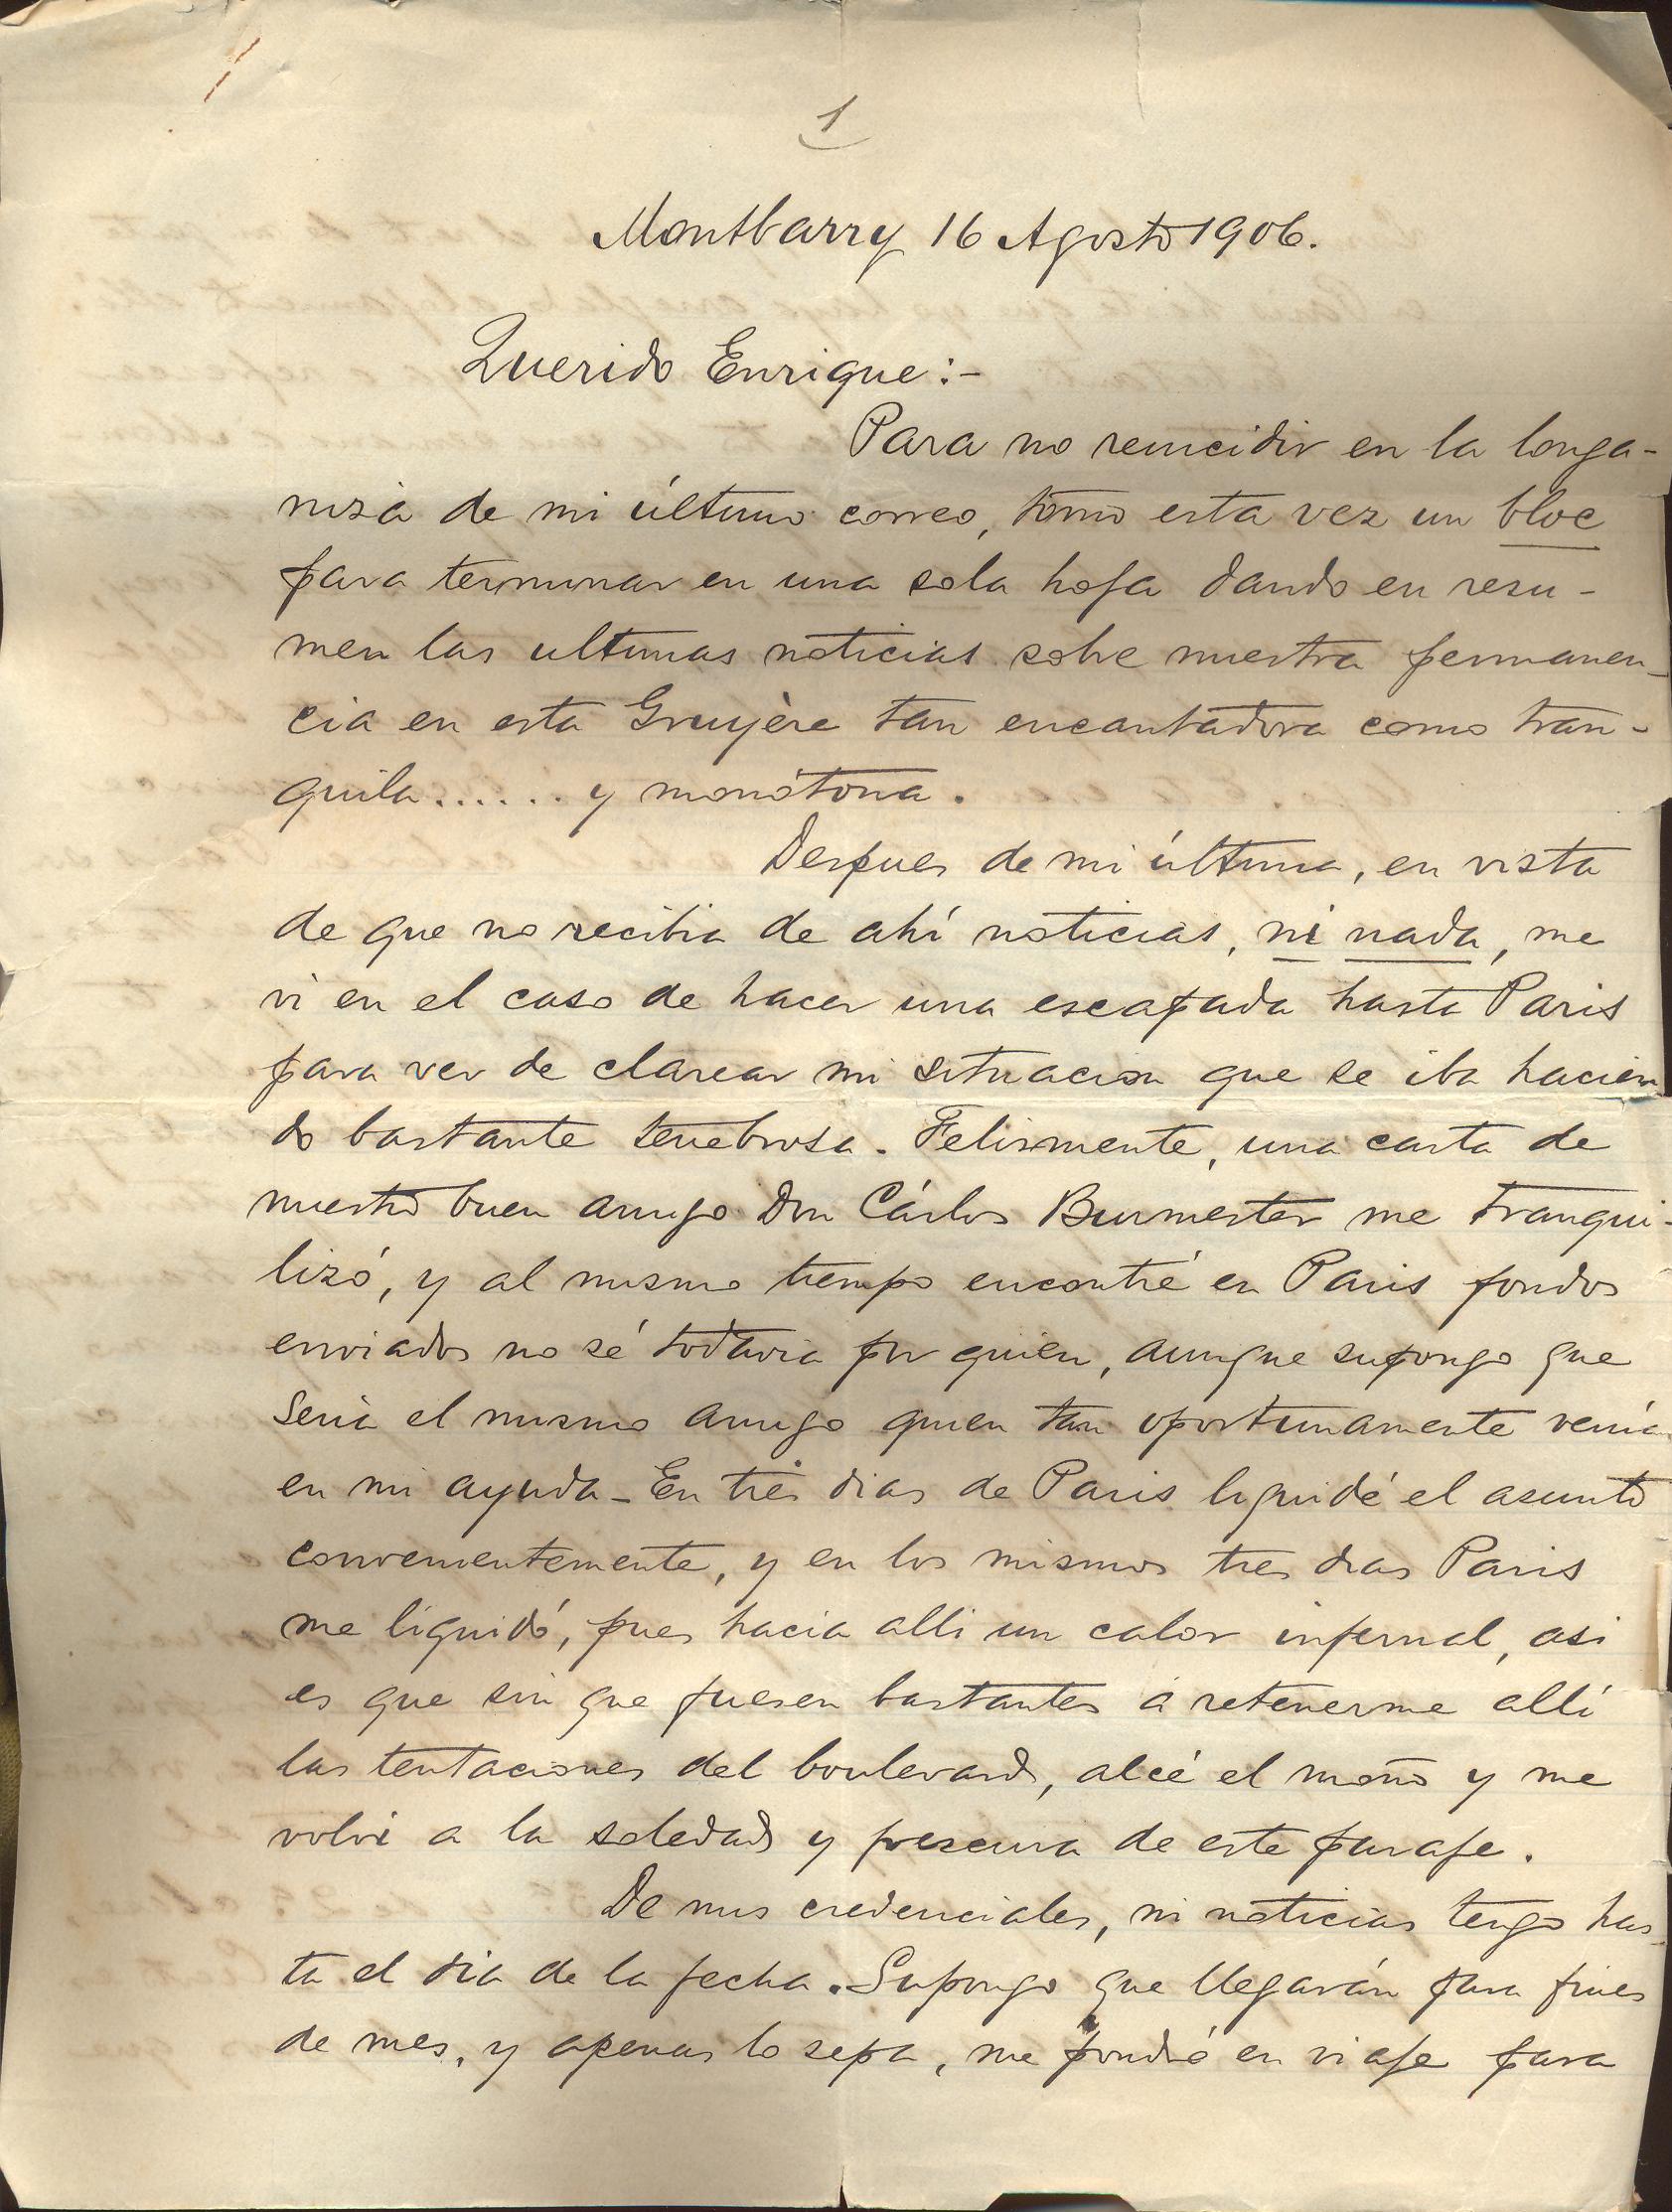 1
Montbarry 16 Agosto 1906.
Querido Enrique:-
Para no reincidir en la longa-
niza de mi último correo, tomo esta vez un bloc
para terminar en una sola hoja dando en resu-
men las ultimas noticias sobre nuestra permanen-
cia en esta Gruyère tan encantadora como tran-
quila...... y monótona.
Despues de mi última, en vista
de que no recibia de ahí noticias, ni nada, me
vi en el caso de hacer una escapada hasta Paris
para ver de clarear mi situacion que se iba hacien
do bastante tenebrosa. Felizmente, una carta de
nuestro buen amigo Don Cárlos Burmester me tranqui-
lizó, y al mismo tiempo encontré en Paris fondos
enviados no sé todavia por quien, aunque supongo que
seria el mismo amigo quien tan oportunamente venía
en mi ayuda - En tres dias de Paris liquidé el asunto
convenientemente, y en los mismos tres dias Paris
me liquidó, pues hacia alli un calor infernal, asi
es que sin que fuesen bastantes á retenerme allí
las tentaciones del boulevard, alcé el moño y me
volvi a la soledad y frescura de este paraje.
De mis credenciales, ni noticias tengo has-
ta el dia de la fecha. Supongo que llegarán para fines
de mes, y apenas lo sepa, me pondré en viaje para